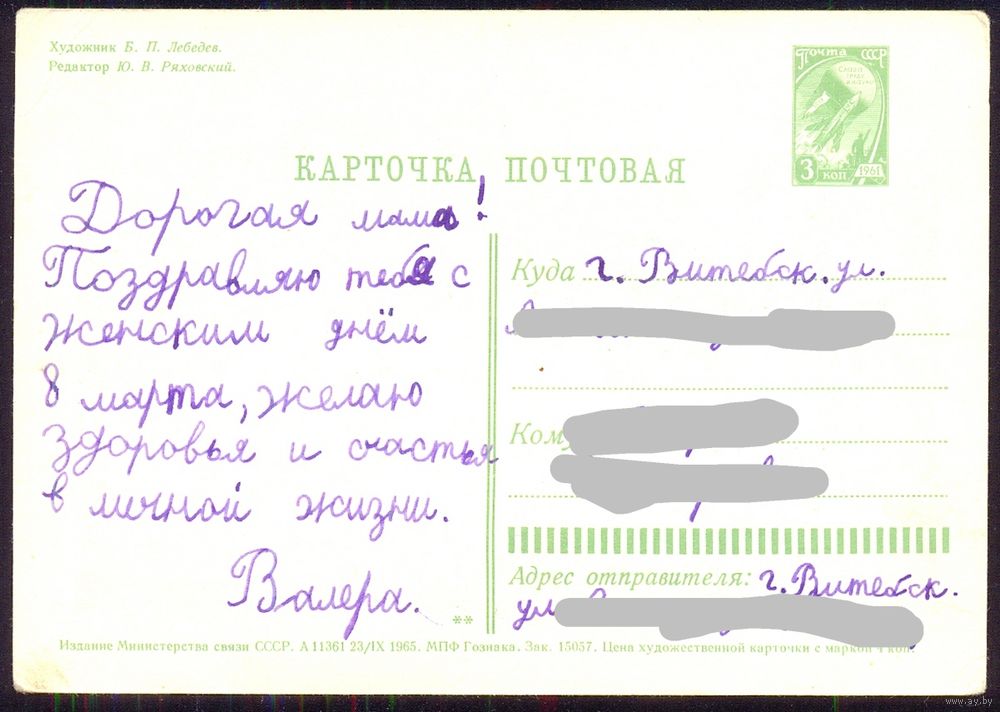 Художник Б. П. Лебедев.
Редактор Ю. В. Ряховский.
ПОЧТА СССР
СЛАВА
ТРУДУ
И НАУКЕ
3 КОП
1961
КАРТОЧКА ПОЧТОВАЯ
Дорогая мама!
Поздравляю тебя с
женским днём
8 марта, желаю
здоровья и счастья
в личной жизни.
Валера.
**
Куда г. Витебск. ул.
Кому
Адрес отправителя: г. Витебск.
ул
Издание Министерства связи СССР. А 11361 23/IX 1965. МПФ Гознака. Зак. 15057. Цена художественной карточки с маркой 4 коп.
www.ay.by